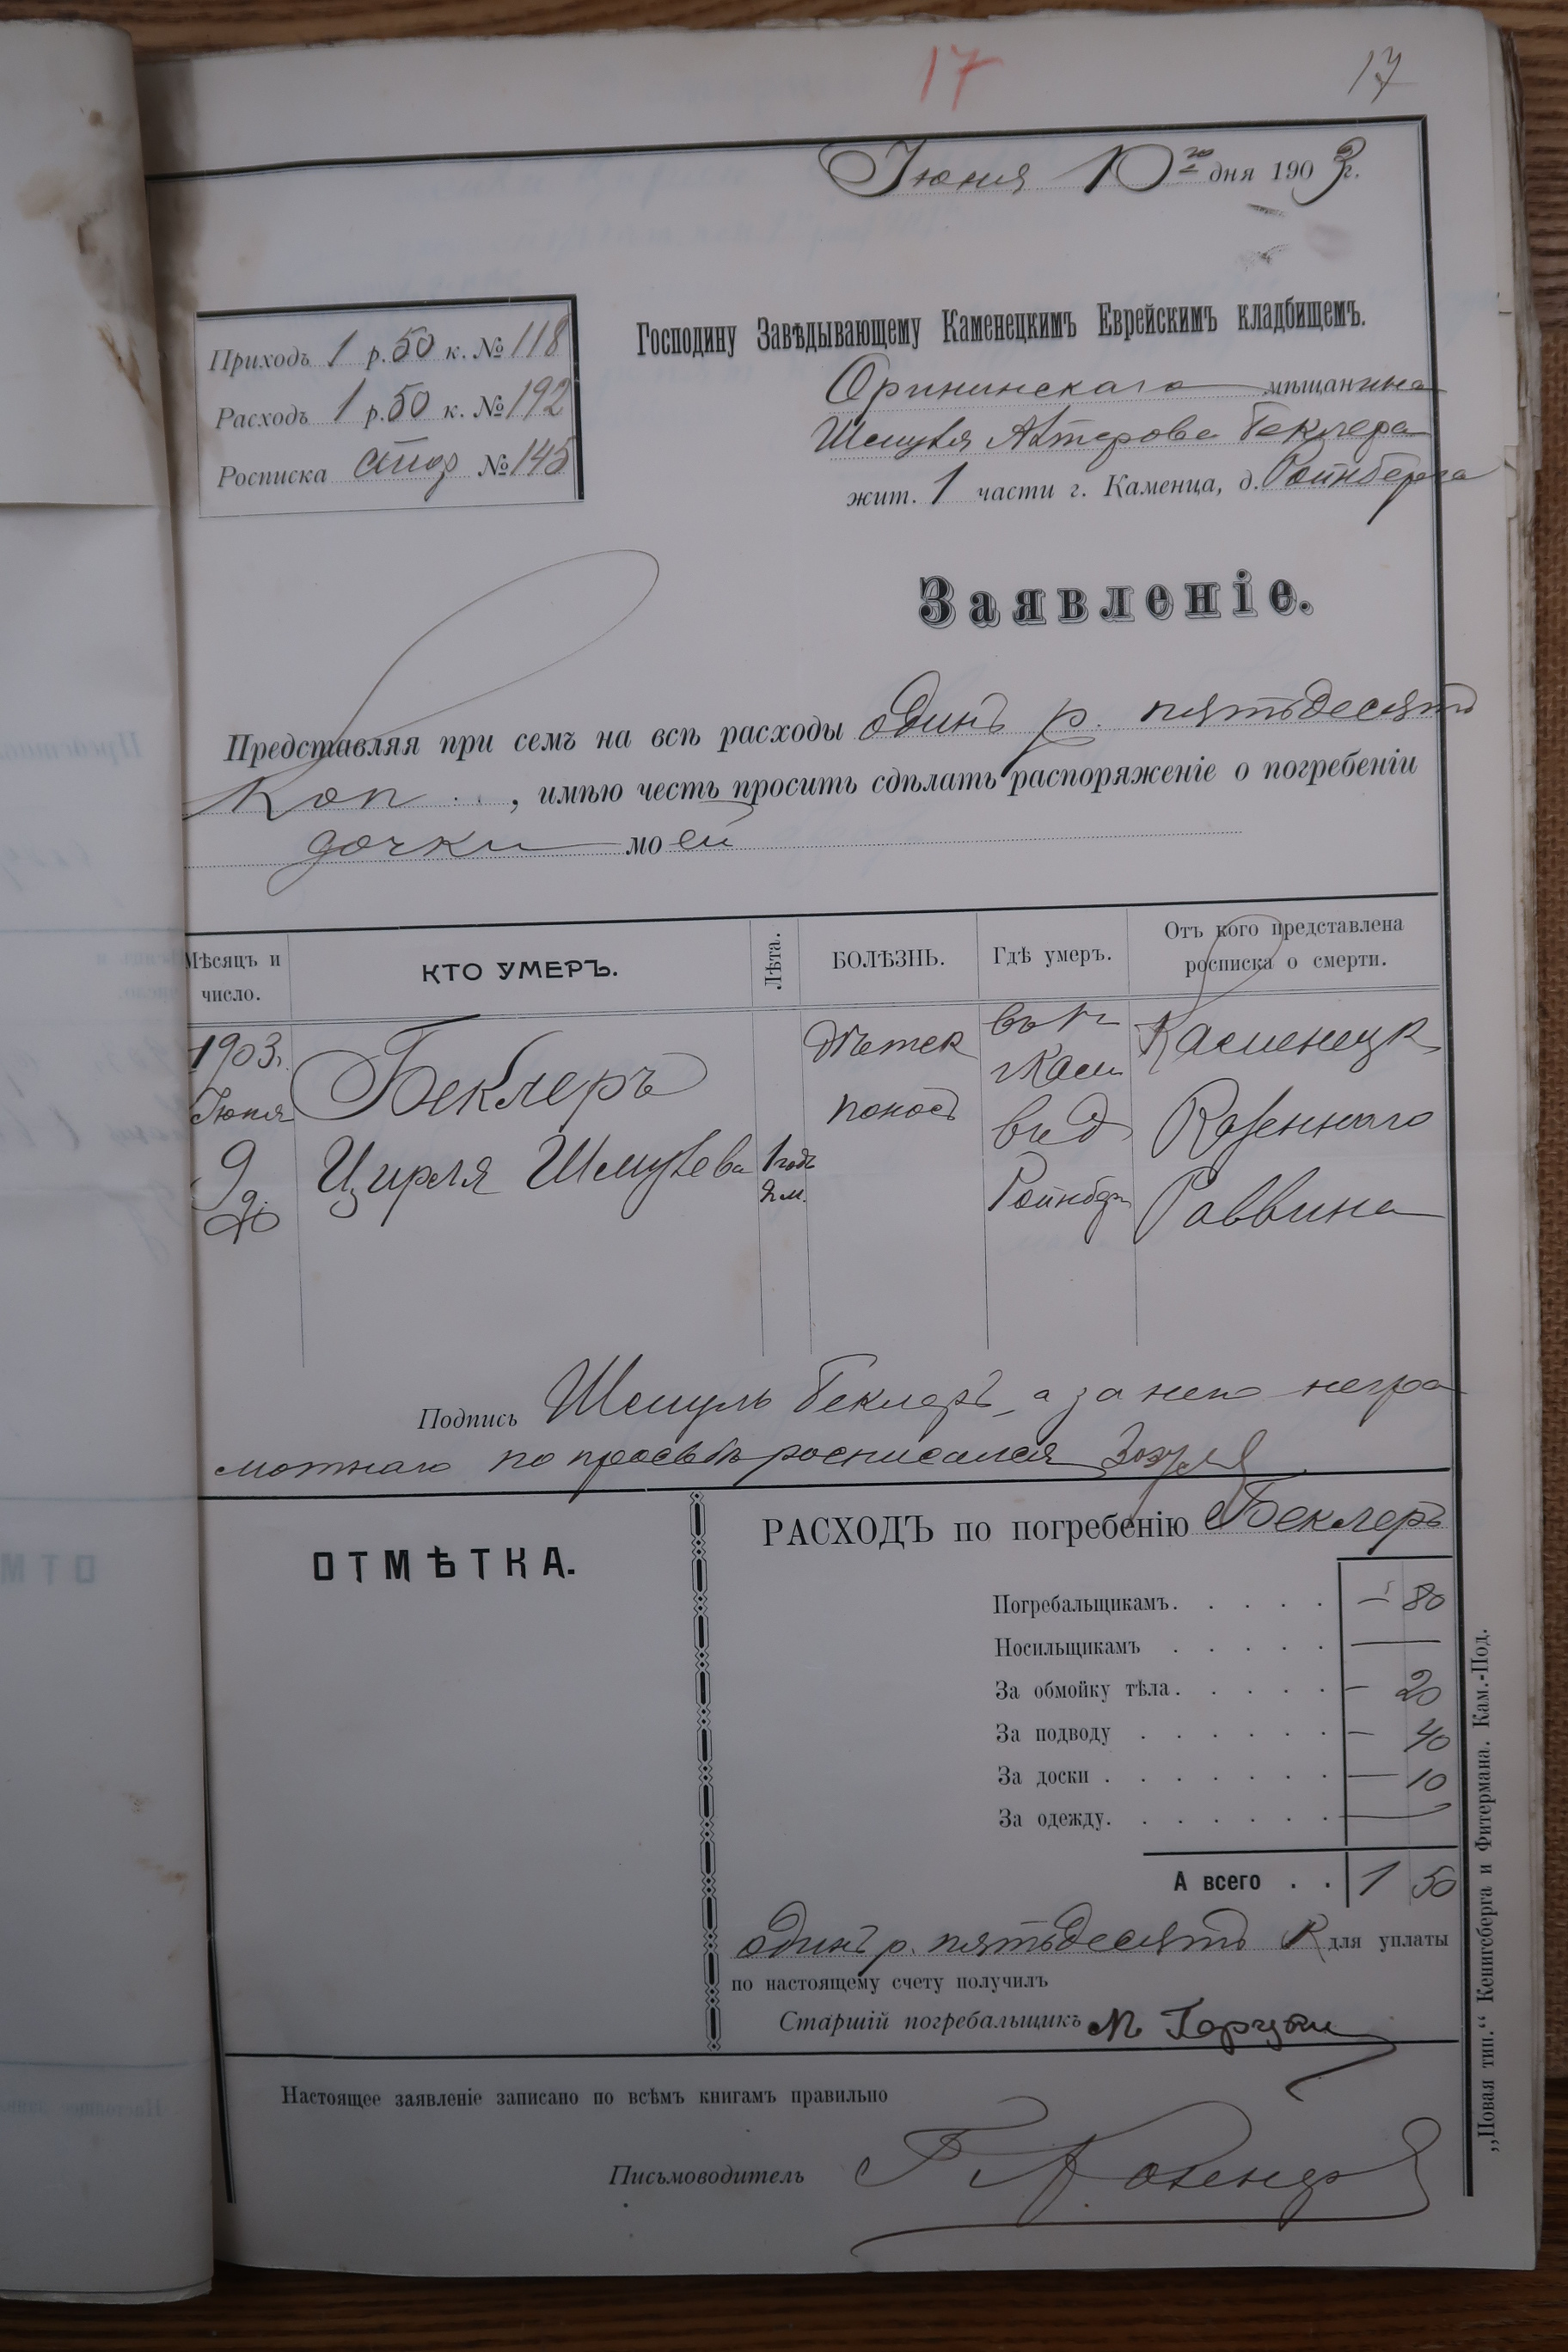 17 17
Июня 10го дня 1903 г.
Приходъ 1 р. 50 к. № 118
Расходъ 1 р. 50 к. № 192
Росписка № 145
Господину Завѣдывающему Каменецкимъ Еврейскимъ кладбищемъ.
Орининскаго мѣщанина
Шмуля Беклера
жит. 1 части г. Каменца, д. Ройнберга
Заявленіе.
Представляя при семъ на всѣ расходы одинъ р. пятьдесятъ
коп . . , имѣю честь просить сдѣлать распоряженіе о погребеніи
дочки моей
Мѣсяцъ и число. КТО УМЕРЪ. Лѣта. БОЛѢЗНЬ. Гдѣ умеръ. Отъ кого представлена росписка о смерти.
1903 г. Беклеръ Дѣтск въ Каменецк
Июня поносъ г Кам Казеннаго
9 д. Цирля Шмулева 1 годъ въ д Раввина
2 м. Ройнбер
Подпись Шмуль Беклеръ, а за него негра
мотнаго по просьбѣ росписался
ОТМѢТКА.
РАСХОДЪ по погребенію Беклеръ
Погребальщикамъ. . . . . — 80
Носильщикамъ . . . . . —
За обмойку тѣла. . . . . — 20
За подводу . . . . . . — 40
За доски . . . . . . . — 10
За одежду. . . . . . . —
А всего . . 1 50
одинъ р. пятьдесятъ к для уплаты
по настоящему счету получилъ
Старшій погребальщикъ М
Настоящее заявленіе записано по всѣмъ книгамъ правильно
Письмоводитель
„Новая тип.“ Кенигсберга и Фитермана. Кам.-Под.